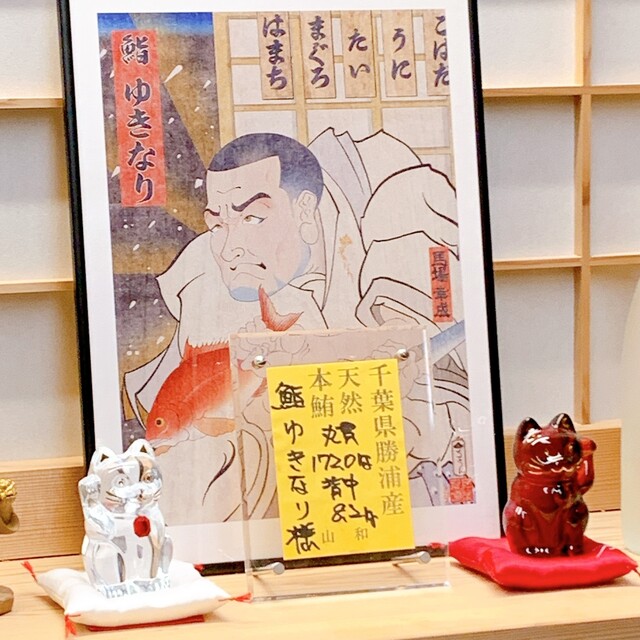 こはだ
うに
たい
まぐろ
はまち
鮨 ゆきなり
馬場 幸成
千葉県勝浦産
天然
本鮪
背中
山和
鮨ゆきなり様